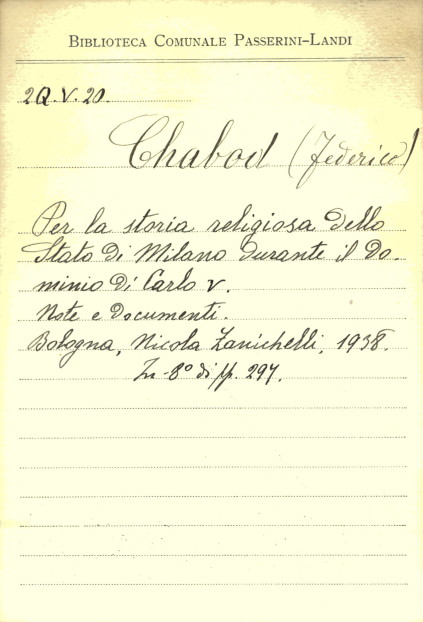 BIBLIOTECA COMUNALE PASSERINI-LANDI
2Q.V.20.
Chabod (Federico)
Per la storia religiosa dello
Stato di Milano durante il Do-
minio di Carlo V.
Note e Documenti.
Bologna, Nicola Zanichelli, 1938.
In-8° di pp. 297.